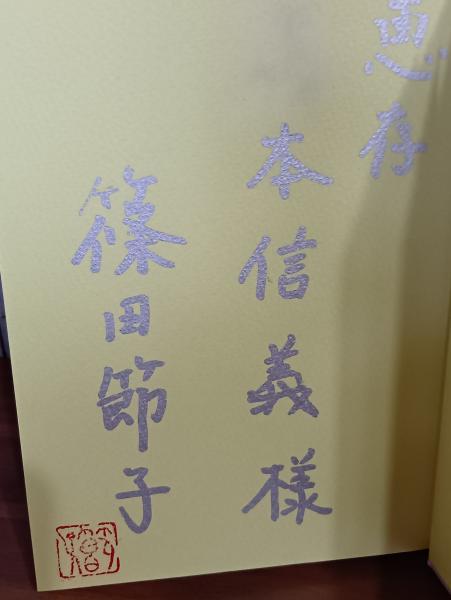 惠存
本信義様
篠田節子